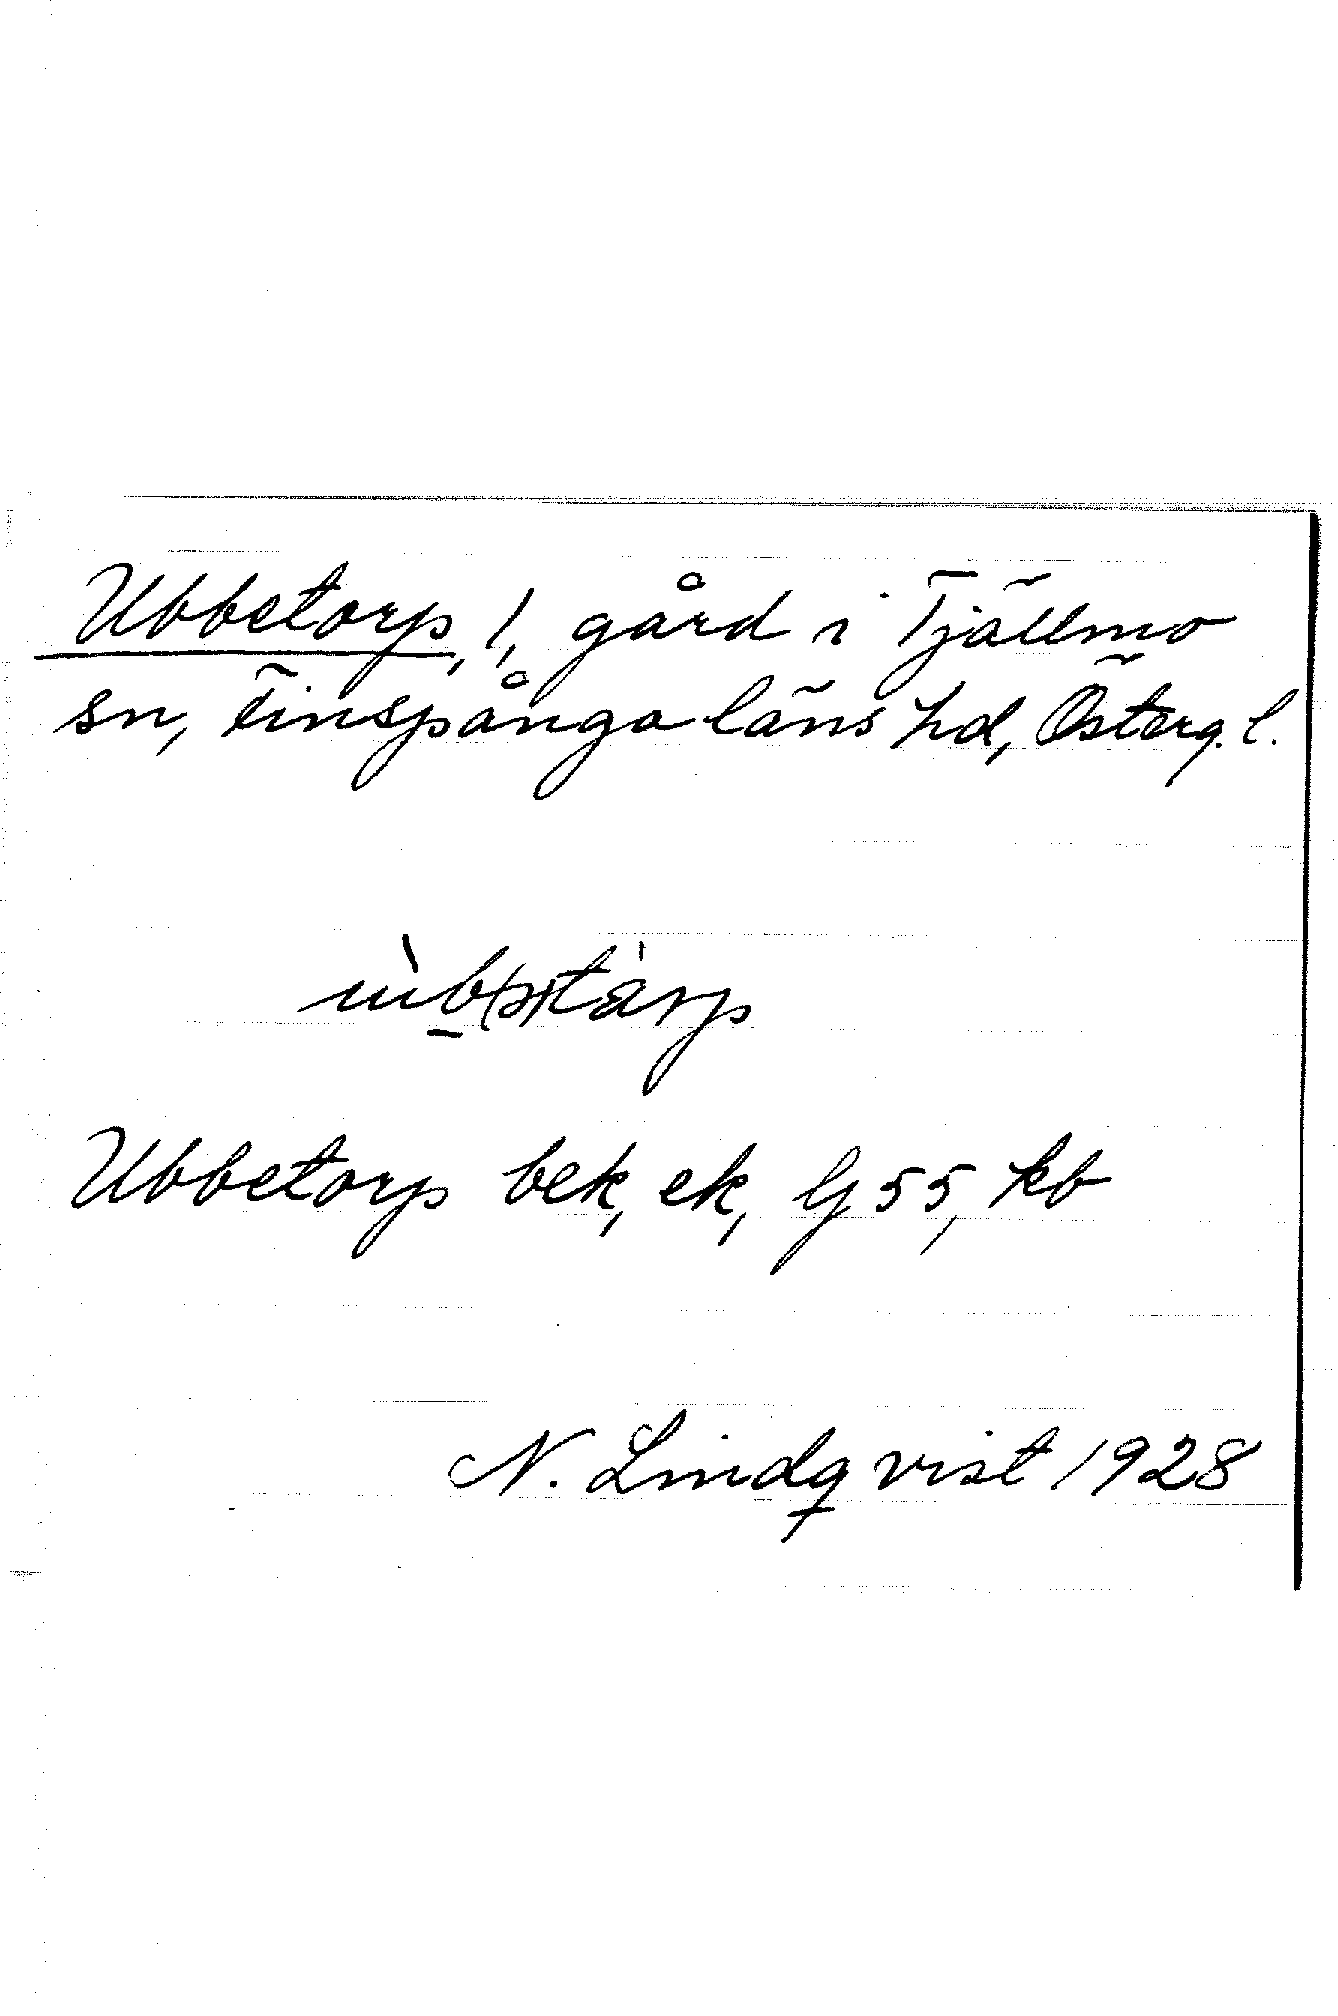 Ubbetorp, 1, gård i Tjällmo
sn, Finspånga läns hd, Österg. l.
ùb(ə)tàrp
Ubbetorp bek, ek, Gj 55, kb
N. Lindqvist 1928